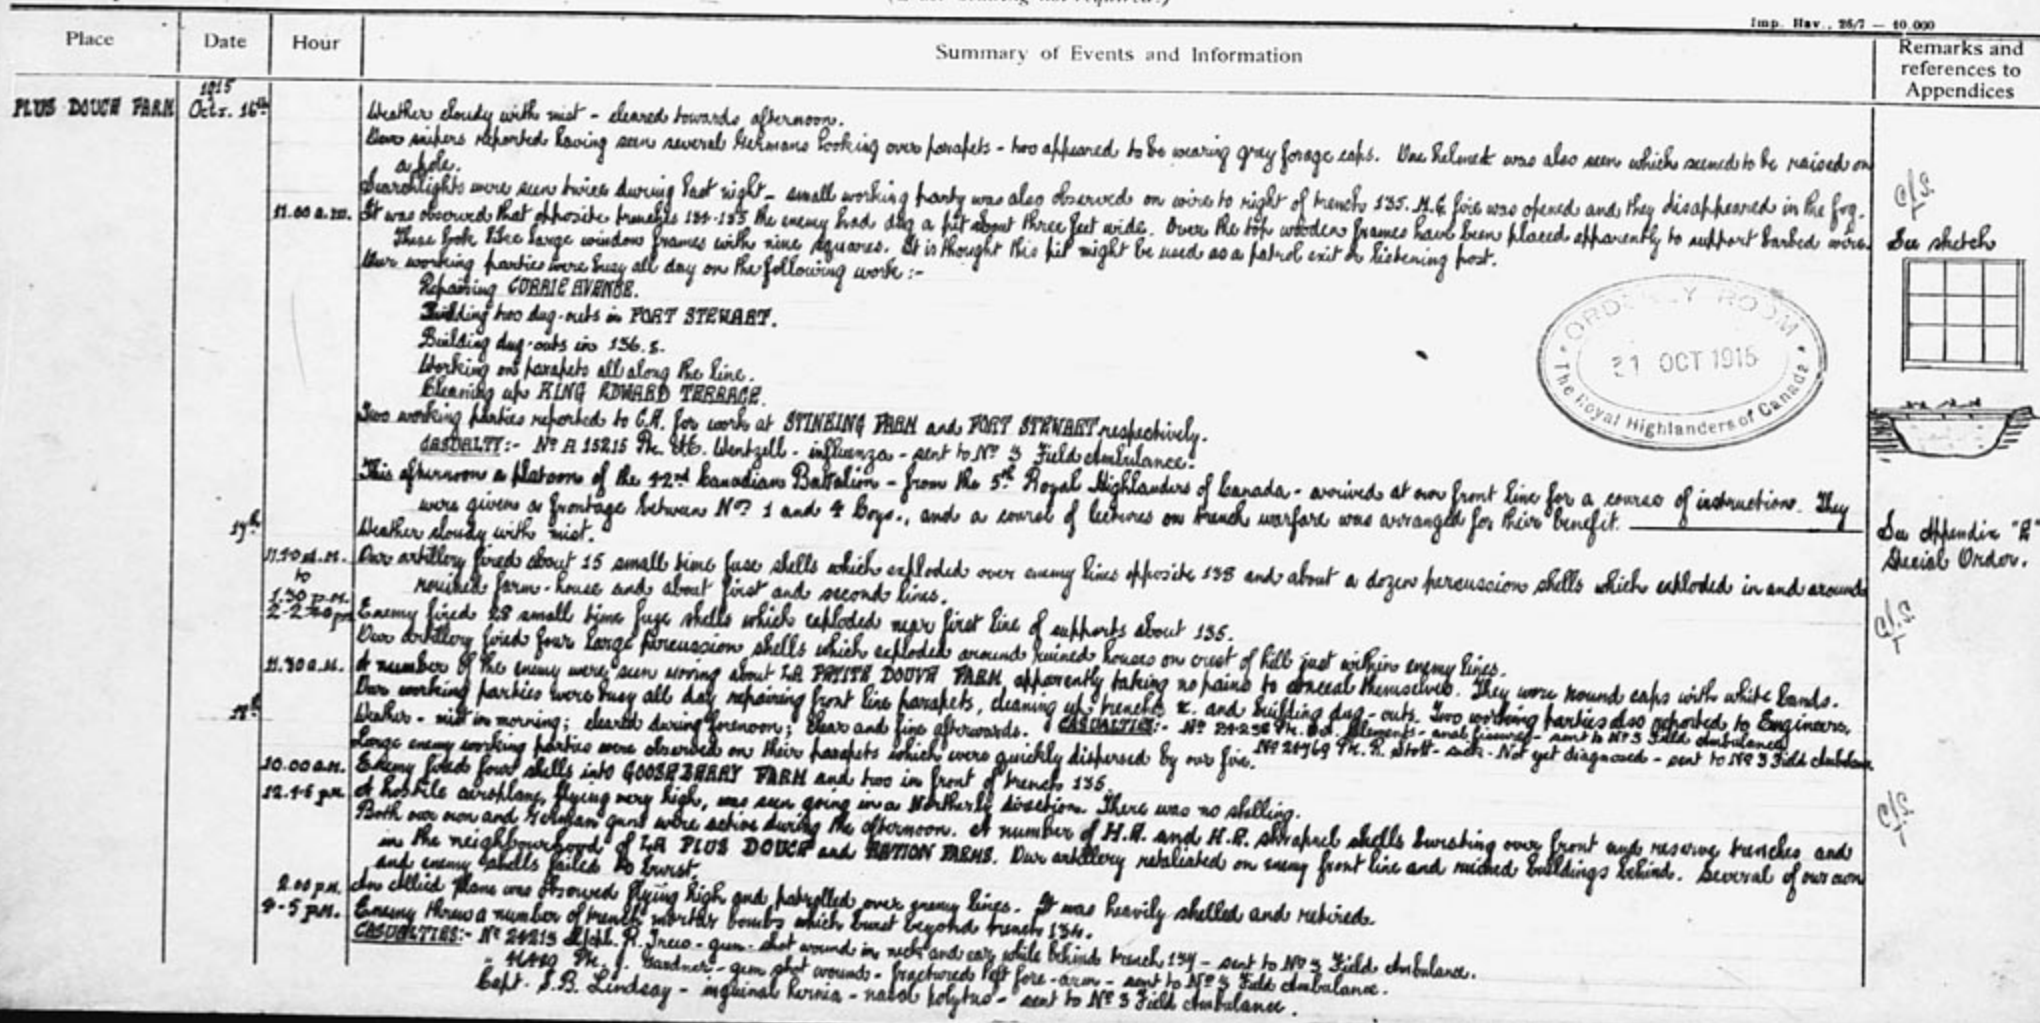 Imp. Hav., 26/7 — 10,000
Place Date Hour Summary of Events and Information Remarks and references to Appendices
PLUS DOUCE FARM 1915 Octr. 16th Weather cloudy with mist - cleared towards afternoon.
Our snipers reported having seen several Germans looking over parapets - two appeared to be wearing grey forage caps. One helmet was also seen which seemed to be raised on
a pole.
Searchlights were seen twice during last night - small working party was also observed on wire to right of trench 135. M.G. fire was opened and they disappeared in the fog.
11.00 a.m. It was observed that opposite trenches 134-135 the enemy had dug a pit about three feet wide. Over the top wooden frames have been placed apparently to support barbed wire.
See sketch
These look like large window frames with nine squares. It is thought this pit might be used as a patrol exit or listening post.
Our working parties were busy all day on the following work :-
Repairing CURRIE AVENUE.
Building two dug-outs in FORT STEWART.
Building dug-outs in 136.S.
Working on parapets all along the line.
Cleaning up KING EDWARD TERRACE.
ORDERLY ROOM
21 OCT 1915
The Royal Highlanders of Canada
Two working parties reported to C.E. for work at STINKING FARM and FORT STEWART respectively.
CASUALTY:- No A 15215 Pte. Wentzell - influenza - sent to No 3 Field Ambulance.
This afternoon a platoon of the 42nd Canadian Battalion - from the 5th Royal Highlanders of Canada - arrived at our front line for a course of instruction. They
were given a frontage between Nos 1 and 4 Coys., and a course of lectures on trench warfare was arranged for their benefit.
See Appendix
Special Order.
17th Weather cloudy with mist.
11.40 A.M. Our artillery fired about 15 small time fuse shells which exploded over enemy lines opposite 138 and about a dozen percussion shells which exploded in and around
to
1.30 P.M. ruined farm-house and about first and second lines.
2-2.40 pm Enemy fired 28 small time fuze shells which exploded near first line of supports about 135.
Our artillery fired four large percussion shells which exploded around ruined houses on crest of hill just within enemy lines.
11.30 A.M. A number of the enemy were seen moving about LA PETITE DOUVE FARM, apparently taking no pains to conceal themselves. They wore round caps with white bands.
Our working parties were busy all day repairing front line parapets, cleaning up trenches &. and building dug-outs. Two working parties also reported to Engineers.
CASUALTIES:- No Pte. Clements - anal fissure - sent to No 3 Field Ambulance
No 24769 Pte. R. Stott - sick - Not yet diagnosed - sent to No 3 Field Ambulance
18th Weather - mist in morning; cleared during forenoon; clear and fine afterwards.
Large enemy working parties were observed on their parapets which were quickly dispersed by our fire.
10.00 A.M. Enemy fired four shells into GOOSEBERRY FARM and two in front of trench 135.
12.45 pm A hostile aeroplane, flying very high, was seen going in a Northerly direction. There was no shelling.
Both our own and German guns were active during the afternoon. A number of H.E. and H.E. shrapnel shells bursting over front and reserve trenches and
in the neighbourhood of LA PLUS DOUCE and RATION FARMS. Our artillery retaliated on enemy front line and ruined buildings behind. Several of our own
and enemy shells failed to burst.
2.00 P.M. An allied plane was observed flying high and patrolled over enemy lines. It was heavily shelled and retired.
4-5 P.M. Enemy threw a number of trench mortar bombs which burst beyond trench 134.
CASUALTIES:- No 24213 R. - gun-shot wound in neck and ear while behind trench 134 - sent to No 3 Field Ambulance.
" Pte. J. Gardner - gun shot wounds - fractured left fore-arm - sent to No 3 Field Ambulance.
Capt. S.B. Lindsay - inguinal hernia - nasal polypus - sent to No 3 Field Ambulance.